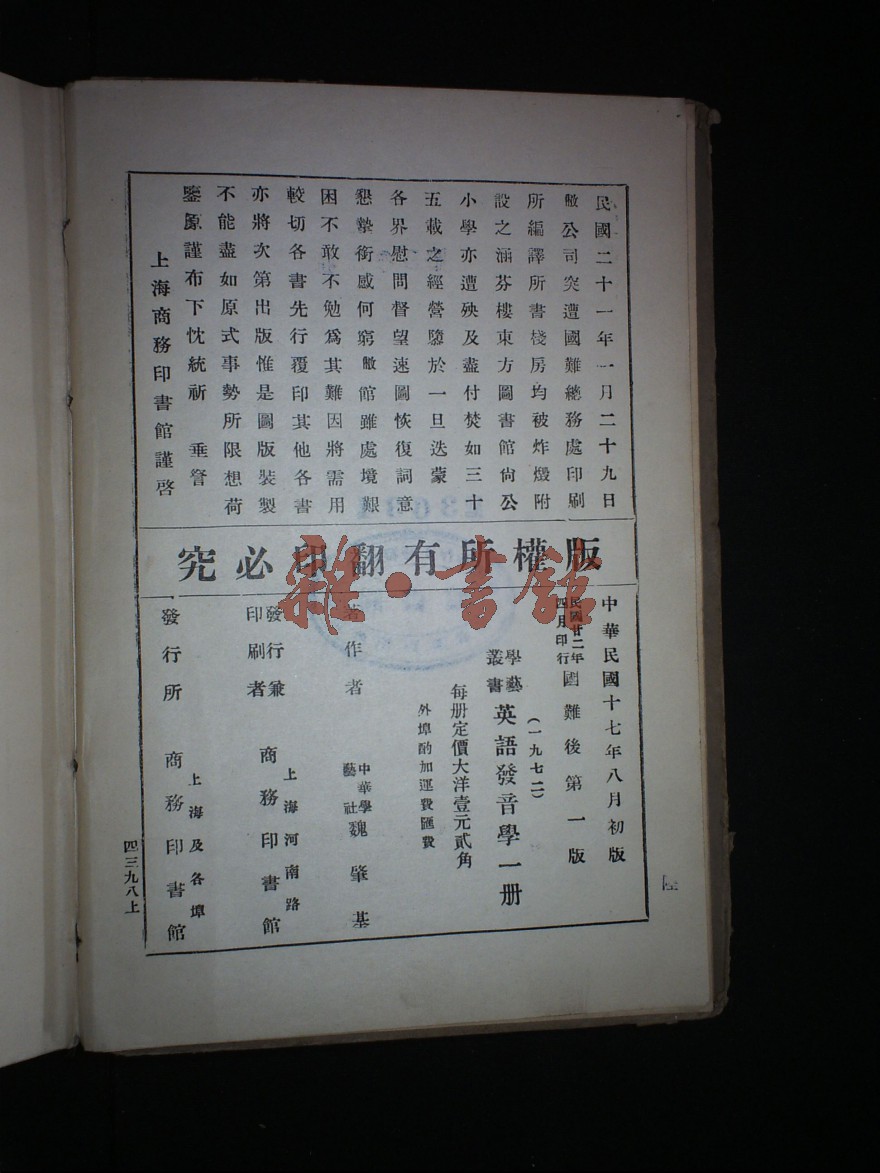 民國二十一年一月二十九日
敝公司突遭國難總務處印刷
所編譯所書棧房均被炸燬附
設之涵芬樓東方圖書館尙公
小學亦遭殃及盡付焚如三十
五載之經營隳於一旦迭蒙
各界慰問督望速圖恢復詞意
懇摯銜感何窮敝館雖處境艱
困不敢不勉爲其難因將需用
較切各書先行覆印其他各書
亦將次第出版惟是圖版裝製
不能盡如原式事勢所限想荷
鑒原謹布下忱統祈 垂詧
上海商務印書館謹啓
版權所有翻印必究
中華民國十七年八月初版
民國廿二年四月印行國難後第一版
(一九七二)
學藝叢書英語發音學一册
每册定價大洋壹元貳角
外埠酌加運費匯費
著作者 中華學藝社魏肇基
發行兼印刷者 上海河南路商務印書館
發行所 上海及各埠商務印書館
四三九八上
雜·書館